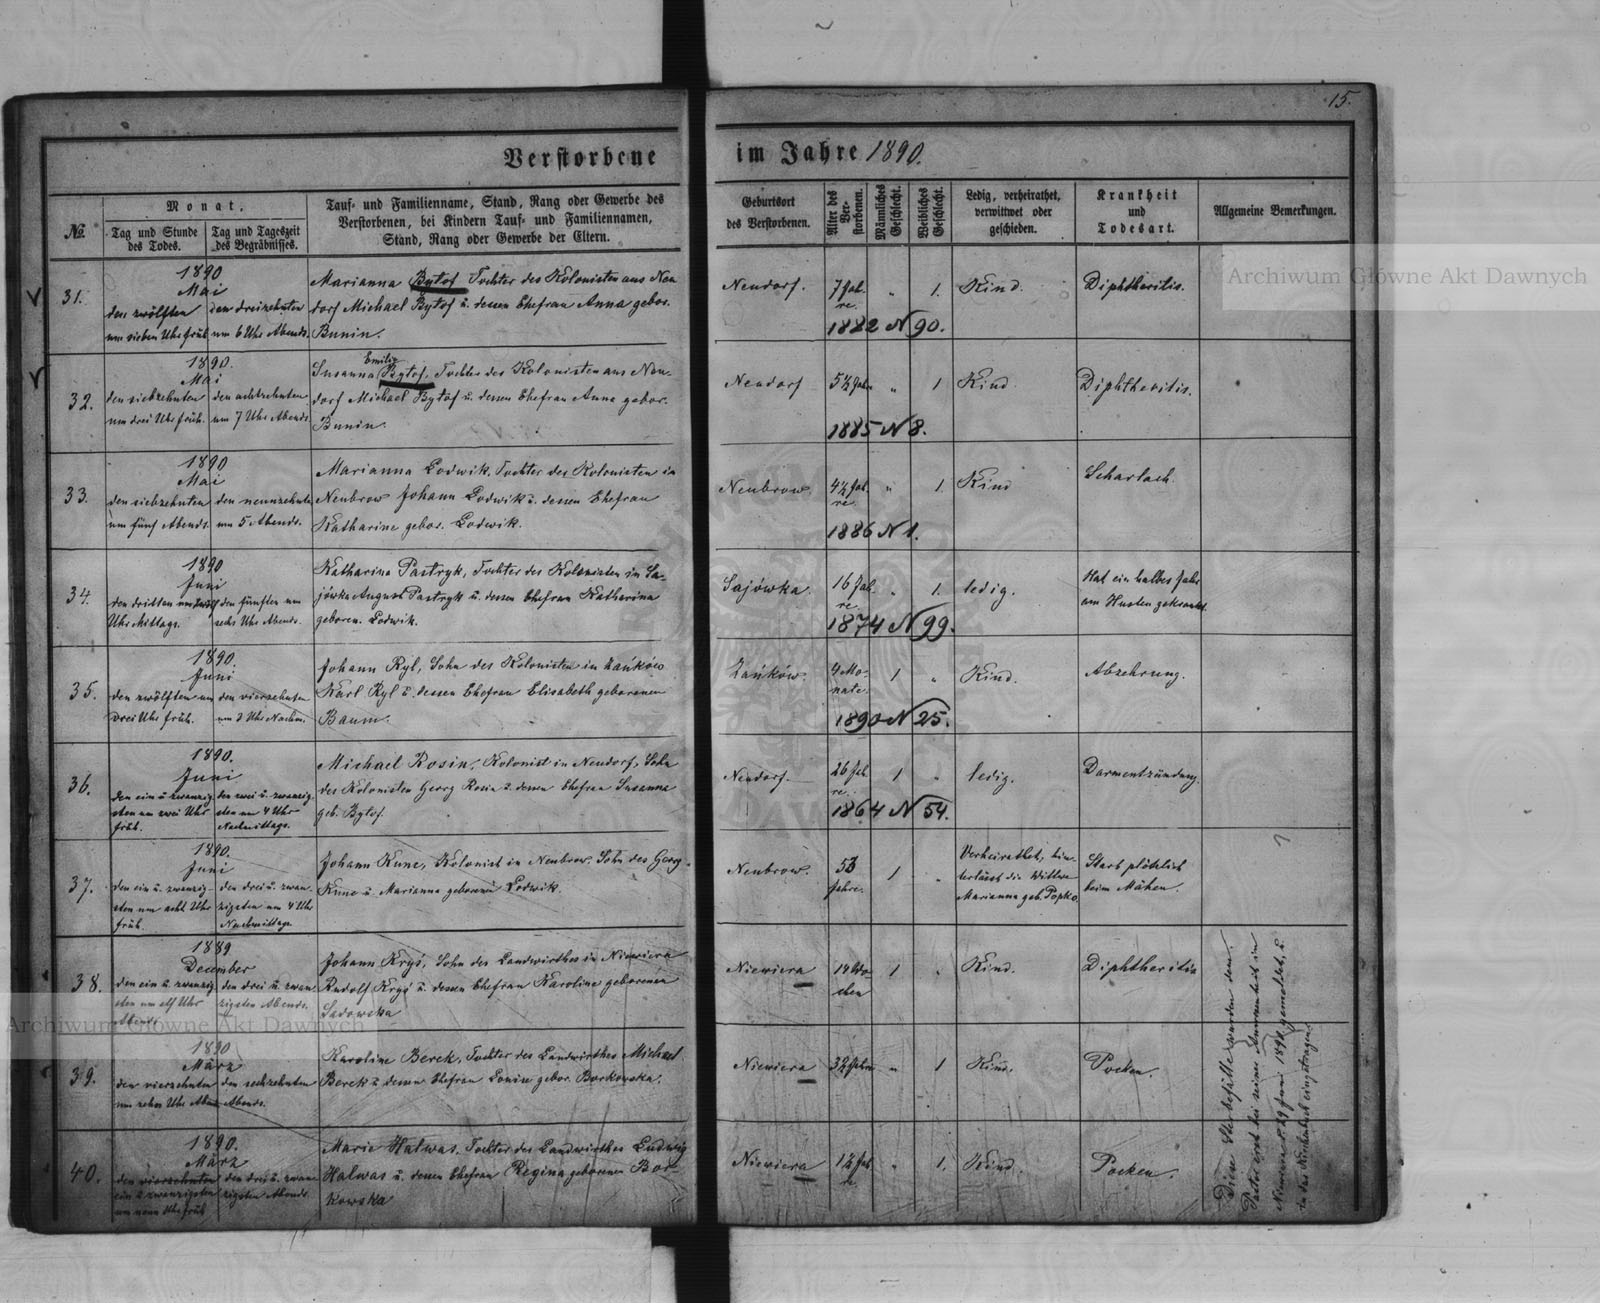 15.
Verstorbene im Jahre 1890.
No.
Monat.
Tag und Stunde des Todes.
Tag und Tageszeit des Begräbnisses.
Tauf- und Familienname, Stand, Rang oder Gewerbe des
Verstorbenen, bei Kindern Tauf- und Familiennamen,
Stand, Rang oder Gewerbe der Eltern.
Geburtsort
des Verstorbenen.
Alter des Ver-storbenen.
Männliches Geschlecht.
Weibliches Geschlecht.
Ledig, verheirathet,
verwittwet oder
geschieden.
Krankheit
und
Todesart.
Allgemeine Bemerkungen.
31.
1890
Mai
den zwölften
um sieben Uhr früh
den dreizehnten
um 6 Uhr Abends.
Marianna Bytof Tochter des Kolonisten aus Neu
dorf Michael Bytof u. dessen Ehefrau Anna gebor.
Bunin.
Neudorf.
7 Jah
re.
" 1.
Kind.
Diphtheritis.
1882 N 90.
32.
1890.
Mai
den siebzehnten
um drei Uhr früh.
den achtzehnten
um 7 Uhr Abends.
Emilie
Susanna Bytof, Tochter des Kolonisten aus Neu-
dorf Michael Bytof u. dessen Ehefrau Anna gebor.
Bunin.
Neudorf
5½ Jah.
" 1
Kind
Diphtheritis.
1885 N 8.
33.
1890
Mai
den siebzehnten
um fünf Abends.
den neunzehnten
um 5 Abends.
Marianna Lodwik, Tochter des Kolonisten in
Neubrow Johann Lodwik u. dessen Ehefrau
Katharine gebor. Lodwik.
Neubrow.
4½ Jah.
re.
" 1.
Kind
Scharlach.
1886 N 1.
34.
1890
Juni
den dritten um
Uhr Mittags.
den fünften um
sechs Uhr Abends.
Katharina Pastryk, Tochter des Kolonisten in Sa-
jówka August Pastryk u. dessen Ehefrau Katharina
geboren. Lodwik.
Sajówka.
16 Jah
re.
" 1.
ledig.
Hat ein halbes Jahr
am Husten gekrankt.
1874 N 99.
35.
1890.
Juni
den zwölften um
drei Uhr früh.
den vierzehnten
um 3 Uhr Nachm.
Johann Ryl, Sohn des Kolonisten in Zańków
Karl Ryl u. dessen Ehefrau Elisabeth geborenen
Baum.
Zańków.
4 Mo-
nate.
1 "
Kind.
Abzehrung.
1890 N 25.
36.
1890.
Juni
den ein u. zwanzig-
sten um zwei Uhr
früh.
den zwei u. zwanzig-
sten um 4 Uhr
Nachmittags.
Michael Rosin, Kolonist in Neudorf, Sohn
des Kolonisten Georg Rosin u. dessen Ehefrau Susanna
geb. Bytof.
Neudorf.
26 Jah
re.
1 "
ledig.
Darmentzündung.
1864 N 54.
37.
1890.
Juni
den ein u. zwanzig-
sten um acht Uhr
früh.
den drei u. zwan-
zigsten um 4 Uhr
Nachmittags.
Johann Kunc, Kolonist in Neubrow. Sohn des Georg
Kunc u. Marianna geborenen Lodwik.
Neubrow.
53
Jahre.
1 "
Verheirathet, hin-
terlässt die Wittwe
Marianna geb. Popko.
Starb plötzlich
beim Mähen.
38.
1889
December
den ein u. zwanzig-
sten um elf Uhr
Abends
den drei u. zwan-
zigsten Abends.
Johann Kryś, Sohn des Landwirthes in Niewiera
Rudolf Kryś u. dessen Ehefrau Karoline geborenen
Sadowska
Niewiera
14 Wo-
chen
1 "
Kind.
Diphtheritis
39.
1890
März
den vierzehnten
um zehn Uhr Abends
den sechzehnten
Abends.
Karoline Berek, Tochter des Landwirthes Michael
Berek u. dessen Ehefrau Louise gebor. Borkowska.
Niewiera
" 1
Kind.
Pocken.
40.
1890.
März
den vierzehnten
ein u. zwanzigsten
um neun Uhr früh
den drei u. zwan-
zigsten Abends
Marie Halwas, Tochter des Landwirthes Ludwig
Halwas u. dessen Ehefrau Regina geborenen Bor-
kowska
Niewiera
1½ Jah
re.
" 1.
Kind.
Pocken.
Diese Sterbefälle wurden dem
Pastor erst bei seiner Anwesenheit in
Niewiera d. 29 Juni 1890 gemeldet, u.
in das Kirchenbuch eingetragen.
Archiwum Główne Akt Dawnych
Archiwum Główne Akt Dawnych